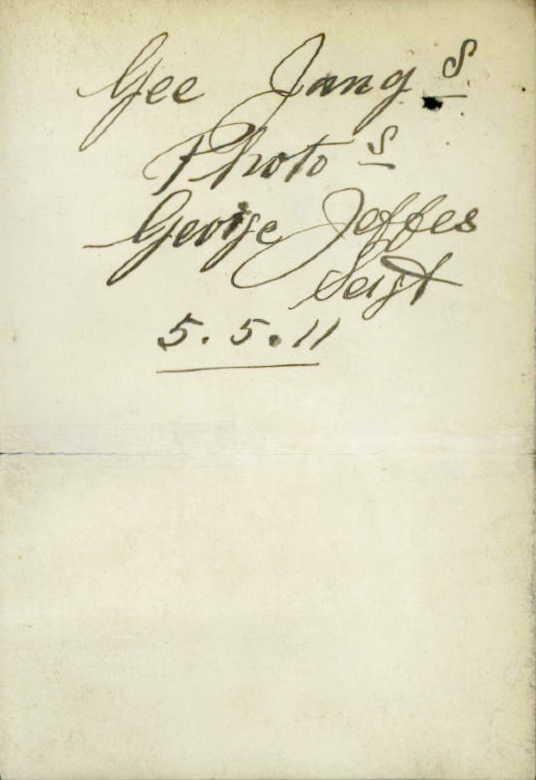 Gee Jang s
Photo s
George Jeffes
Sergt
5.5.11